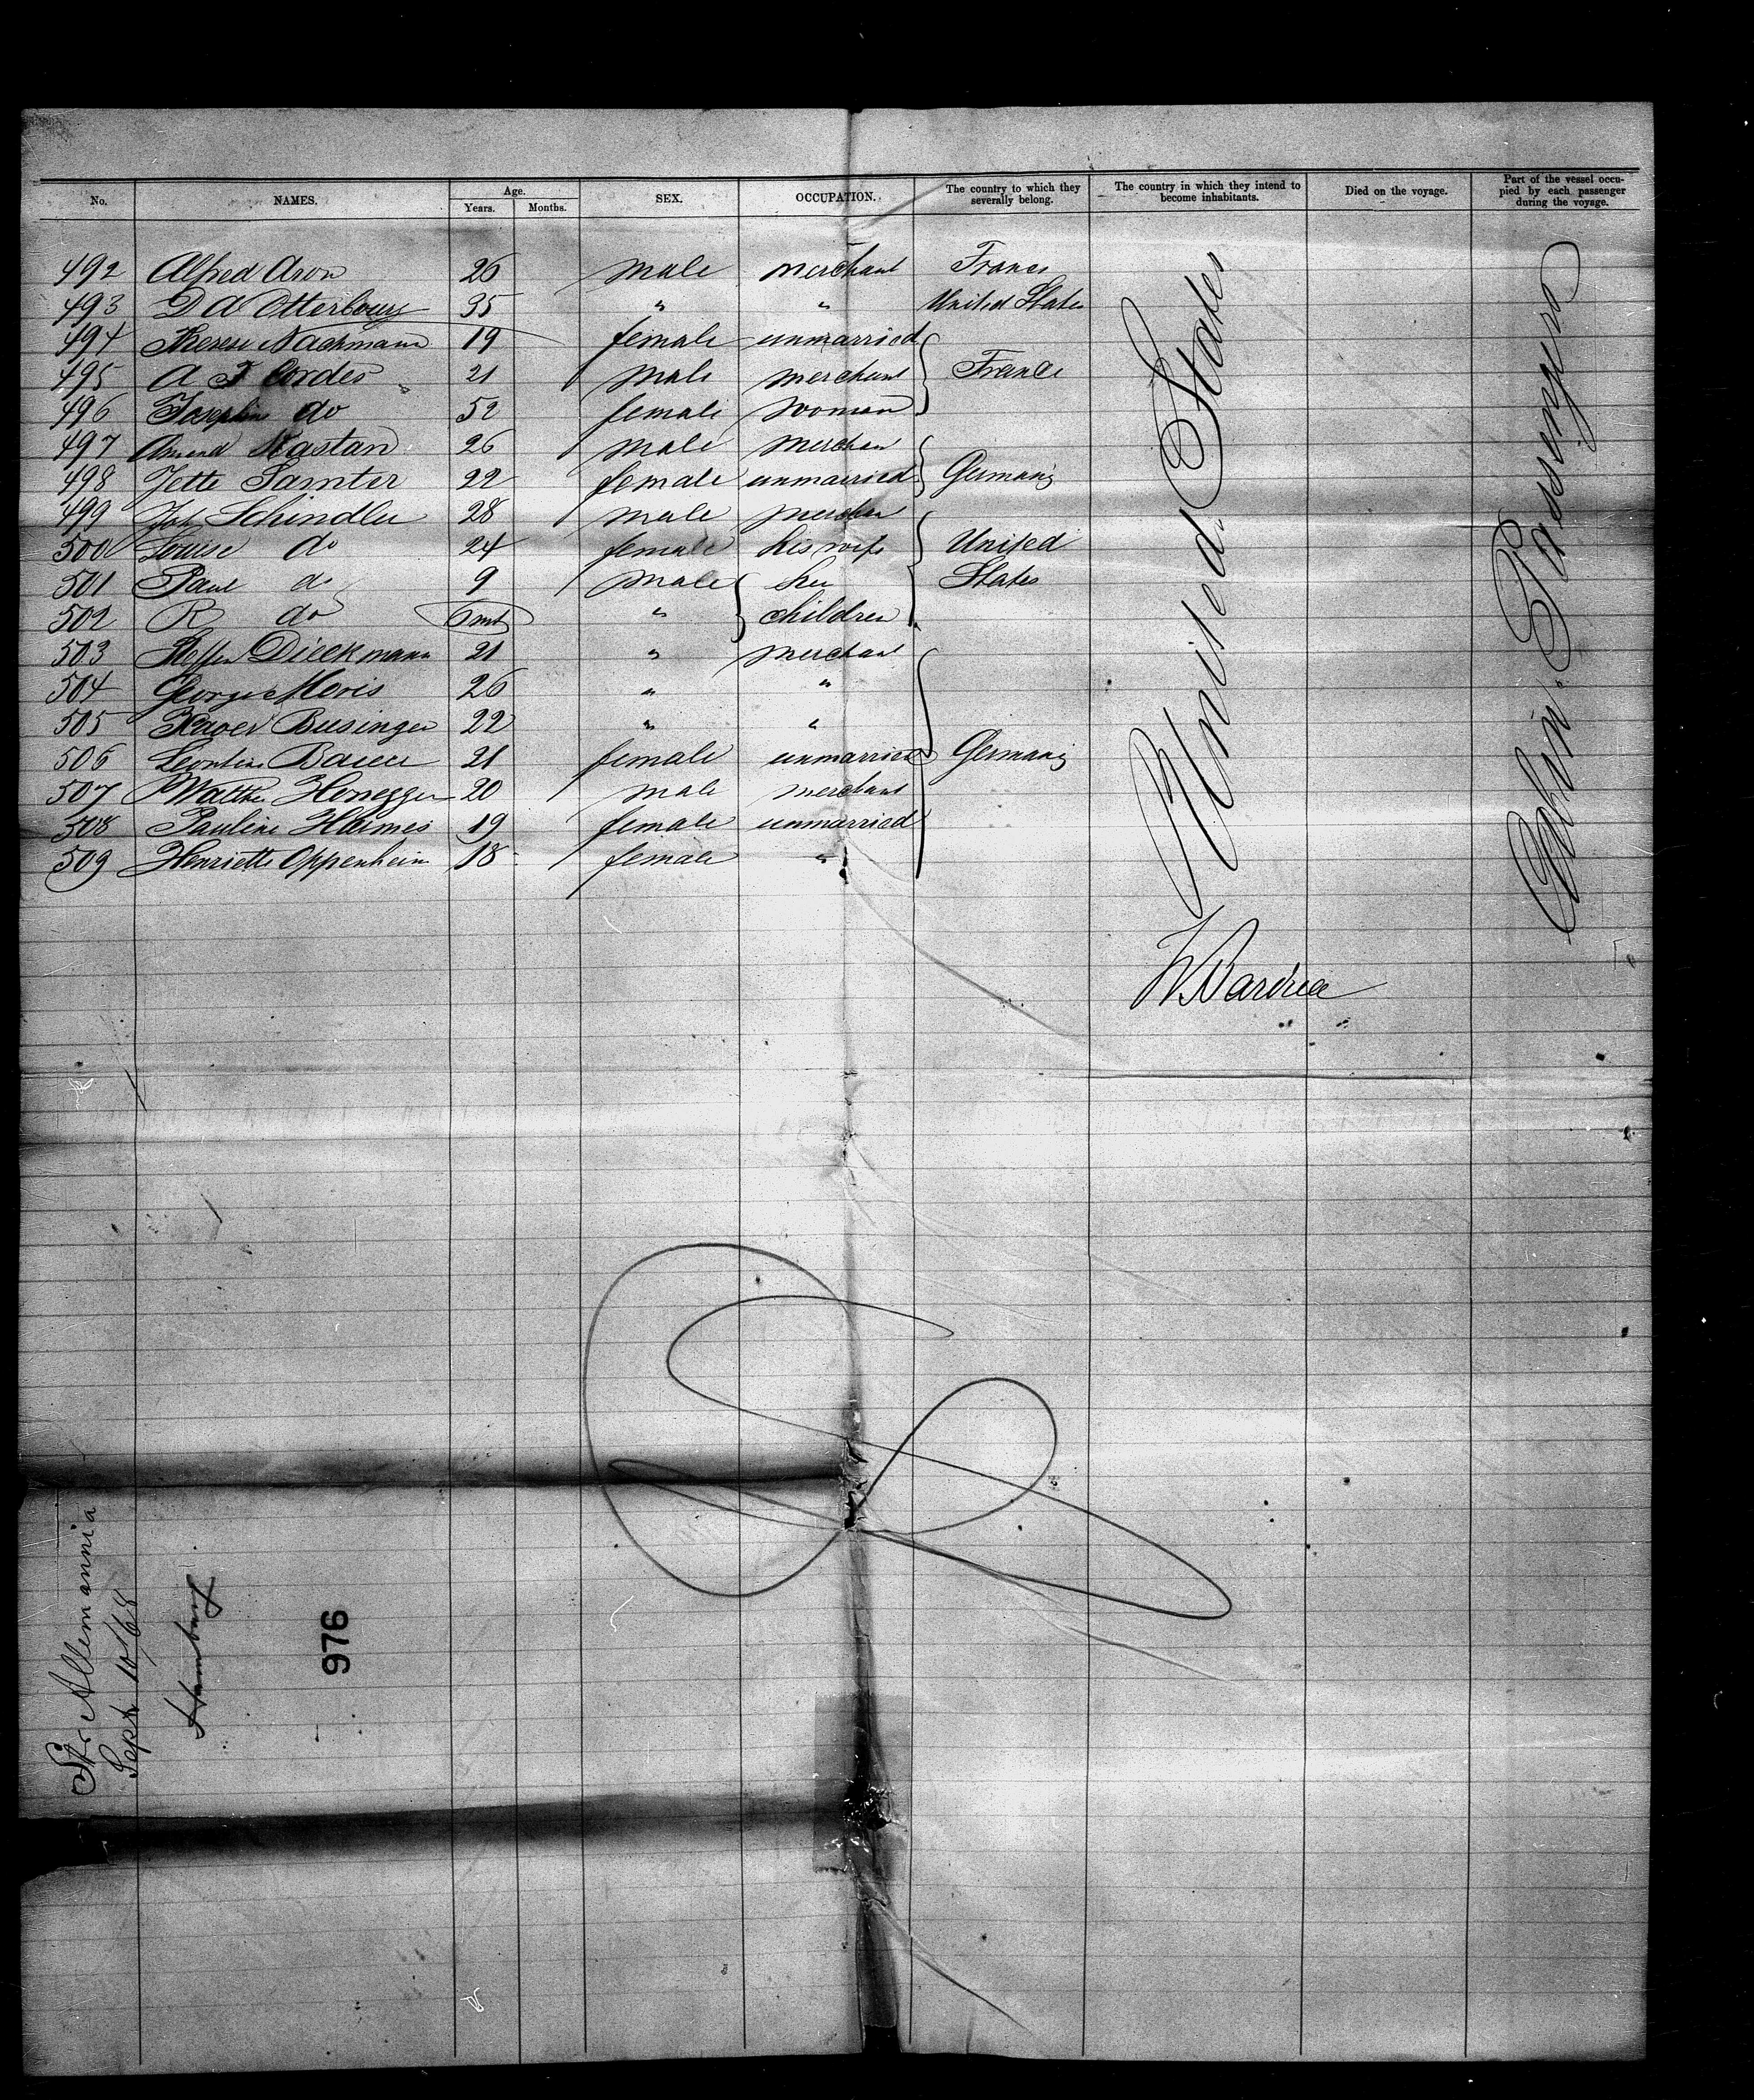 No. NAMES. Age. Years. Months. SEX. OCCUPATION. The country to which they severally belong. The country in which they intend to become inhabitants. Died on the voyage. Part of the vessel occupied by each passenger during the voyage.
492 Alfred Aron 26 male merchant France
493 D A Otterbourg 35 " " United States
494 Therese Nachmann 19 female unmarried
495 A F Cordes 21 male merchant France
496 Josephine do 52 female woman
497 Armand Kastan 26 male merchan
498 Jette Samter 22 female unmarried Germany
499 Joh Schindler 28 male merchan
500 Louise do 24 female his wife United
501 Paul do 9 male her States
502 R do 6 mts " children
503 Dieckmann 21 " merchant
504 George Meris 26 " "
505 Xaver Businger 22 " "
506 Leontine 21 female unmarried Germany
507 Walther Honegger 20 male merchant
508 Pauline Haimes 19 female unmarried
509 Henriette Oppenheim 18 female "
United States
Cabin Passengers
Str Allemannia
Sept 10/68
Hamburg
976